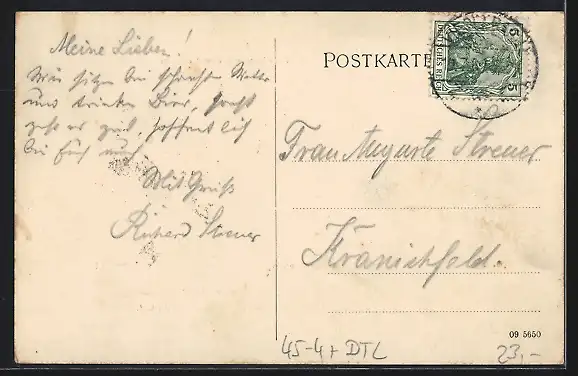 Meine Lieben!
Wir sitzen bei schönsten Wetter
und trinken Bier, sonst
geht es gut, hoffentlich
bei Euch auch
Mit Gruß
Richard Streuer
POSTKARTE
DEUTSCHES REICH
5 5
Frau Auguste Streuer
Kranichfeld.
09 5650
45-4+ DTL
23,-